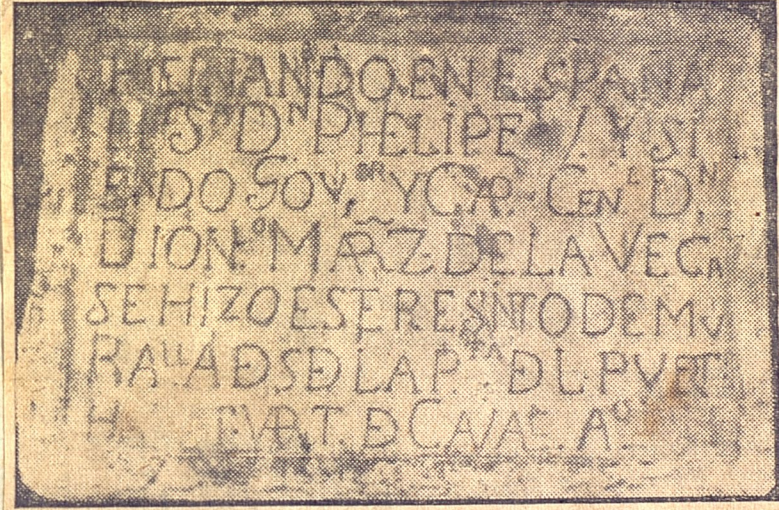 HIERNANDO.EN ESPANA
EL Sʳ Dᴺ PHELIPE Y SI
ENDO GOVᴼᴿ Y CAP. GENᴸ Dᴺ
DIONᵒ MARZ. DE LA VEGA
SE HIZO ESTE RESINTO DE MU
RALLA DSD LA Pᵀᴬ D L. PVERT